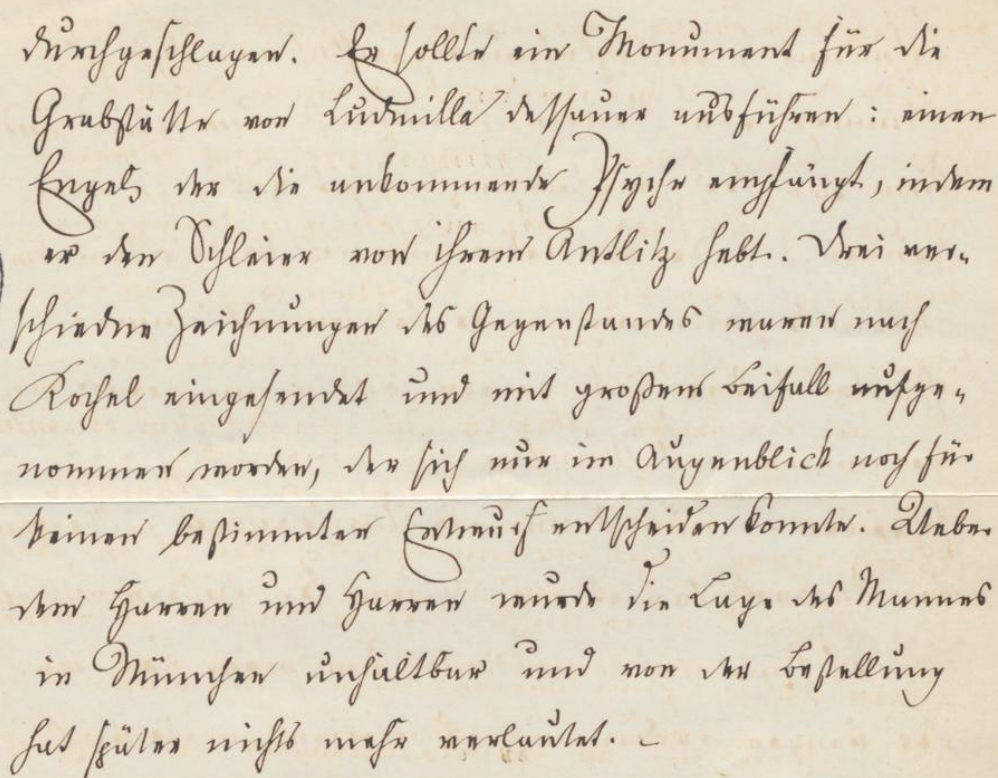 durchgeschlagen. Er sollte ein Monument für die
Grabstätte von Ludmilla Dessauer ausführen: einen
Engel, der die ankommende Psyche empfängt, indem
er den Schleier von ihrem Antlitz hebt. Drei ver-
schiedne Zeichnungen des Gegenstandes waren nach
Kochel eingesendet und mit großem Beifall aufge-
nommen worden, der sich nur im Augenblick noch für
keinen bestimmten Entwurf entscheiden konnte. Ueber
dem Harren und Harren wurde die Lage des Mannes
in München unhaltbar und von der Bestellung
hat später nichts mehr verlautet. –